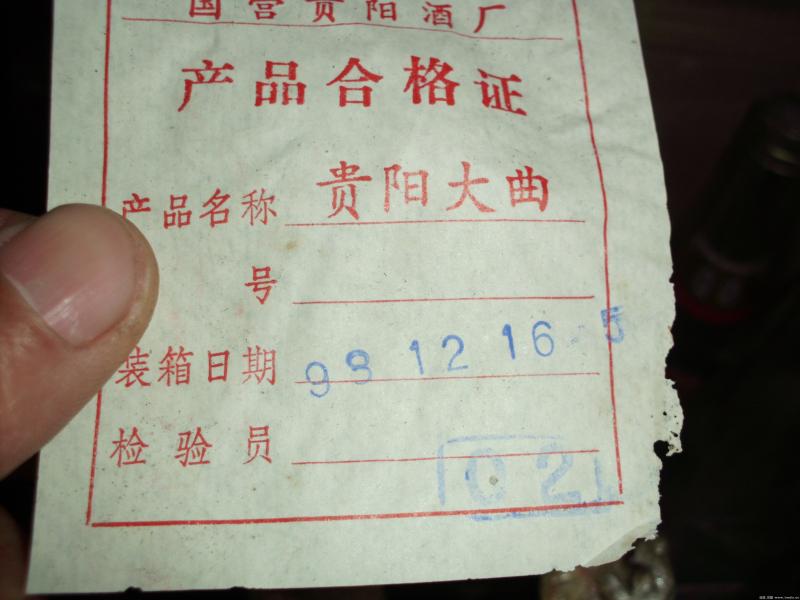 国营贵阳酒厂
产品合格证
产品名称 贵阳大曲
号
装箱日期 93 12 16 5
检验员 02